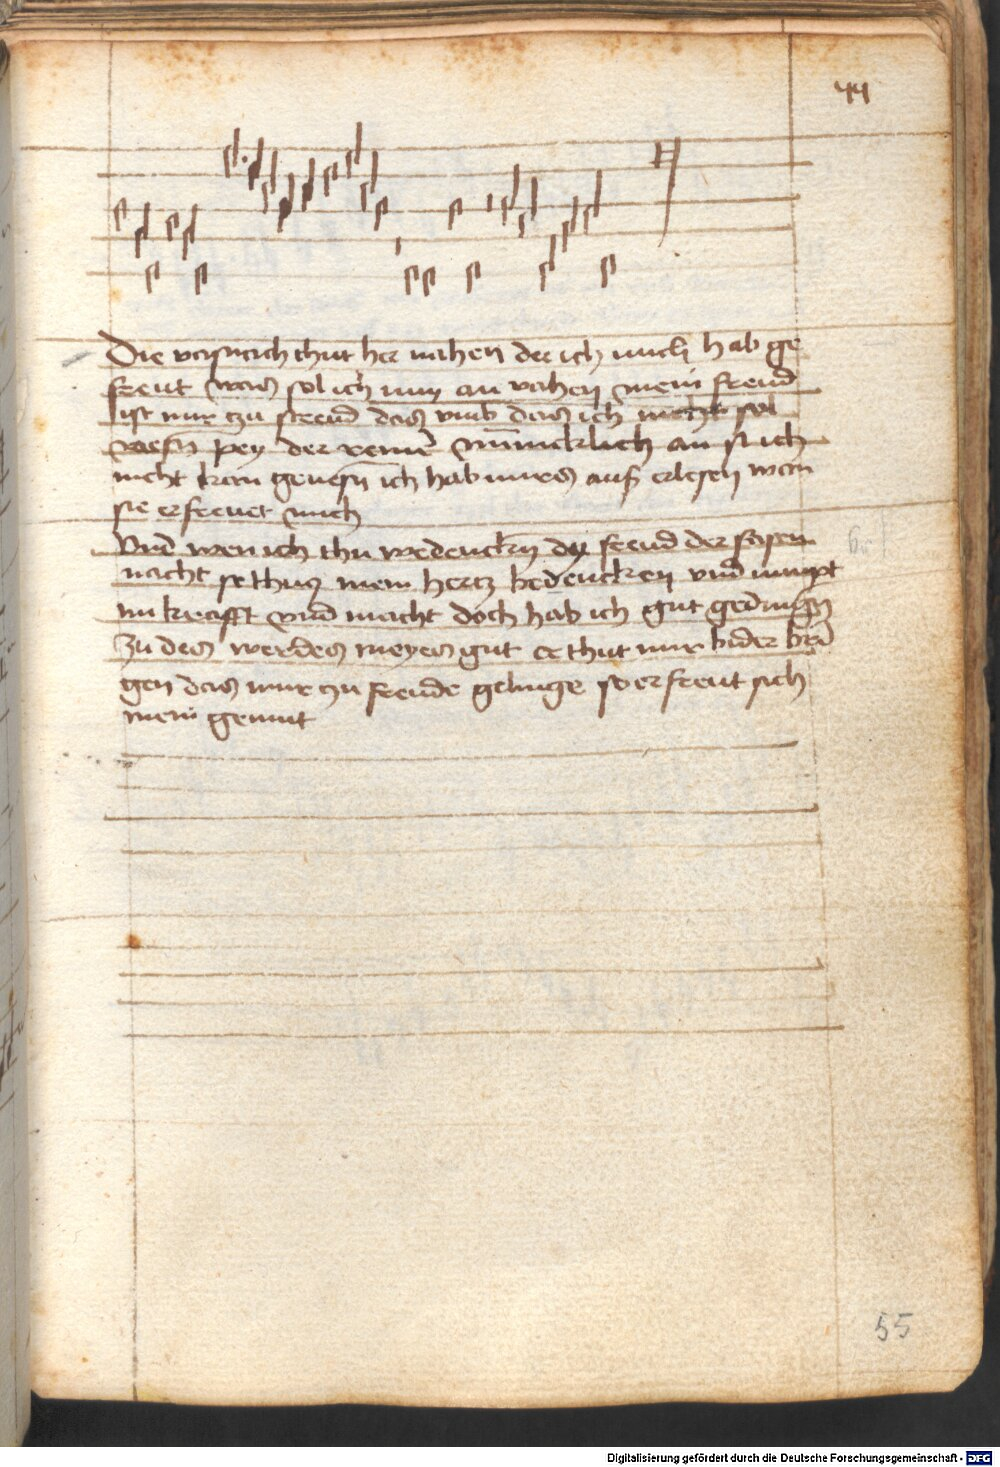 44
Die vasnach thut her nahen der ich mich hab ge
freut was sol ich nun an vahen mein freud
ist mir zu streud das vmb das ich nicht sol
wesn pey der rein mynicklich an sich
nicht kan genesn ich hab mirs aus erlesen wan
sie erfreuet mich
Vnd wen ich thu wedencken dy freud der fasen
nacht so thut mein hertz bedencken vnd nimpt
im krafft vnd macht doch hab ich gut gedingen
zu des werdes meyes gut er thut mir bider brin
gen das mir zu freude gelinge so erfreut sich
mein gemut
55
Digitalisierung gefördert durch die Deutsche Forschungsgemeinschaft - DFG